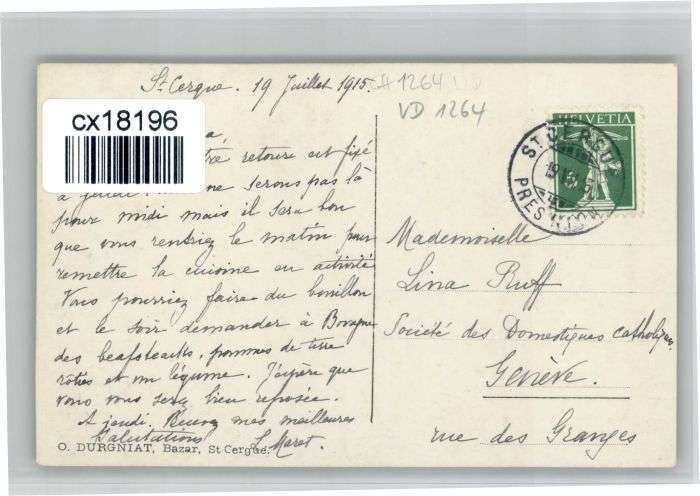 St Cergue. 19 Juillet 1915.
CA 1264 VD
VD 1264
cx18196
a,
tre retour est fixé
à jeudi. ne serons pas là
pour midi mais il sera bon
que vous rentriez le matin pour
remettre la cuisine en activité
Vous pourriez faire du bouillon
et le soir demander à
des beafsteacks, pommes de terre
rôties et un légume. J'espère que
vous vous serez bien reposée.
A jeudi. mes meilleures
Salutations
S. Maret.
O. DURGNIAT, Bazar, St Cergue.
HELVETIA
ST CERGUE
19
PRES NYON
Mademoiselle
Lina Ruff
Société des Domestiques Catholiques
Genève.
rue des Granges